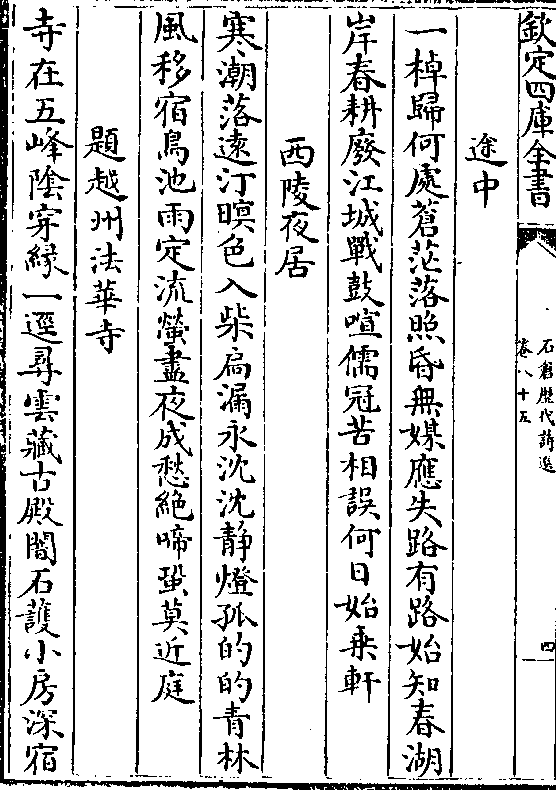 欽定四庫全書
石倉歴代詩選
卷八十五
四
途中
一棹歸何處蒼茫落照昏無媒應失路有路始知春湖
岸春耕廢江城戰鼓喧儒冠苦相誤何日始乗軒
西陵夜居
寒潮落遠汀暝色入柴扃漏永沈沈静燈孤的的青林
風移宿鳥池雨定流螢盡夜成愁絶啼蛩莫近庭
題越州法華寺
寺在五峰隂穿縁一逕尋雲藏古殿闇石護小房深宿